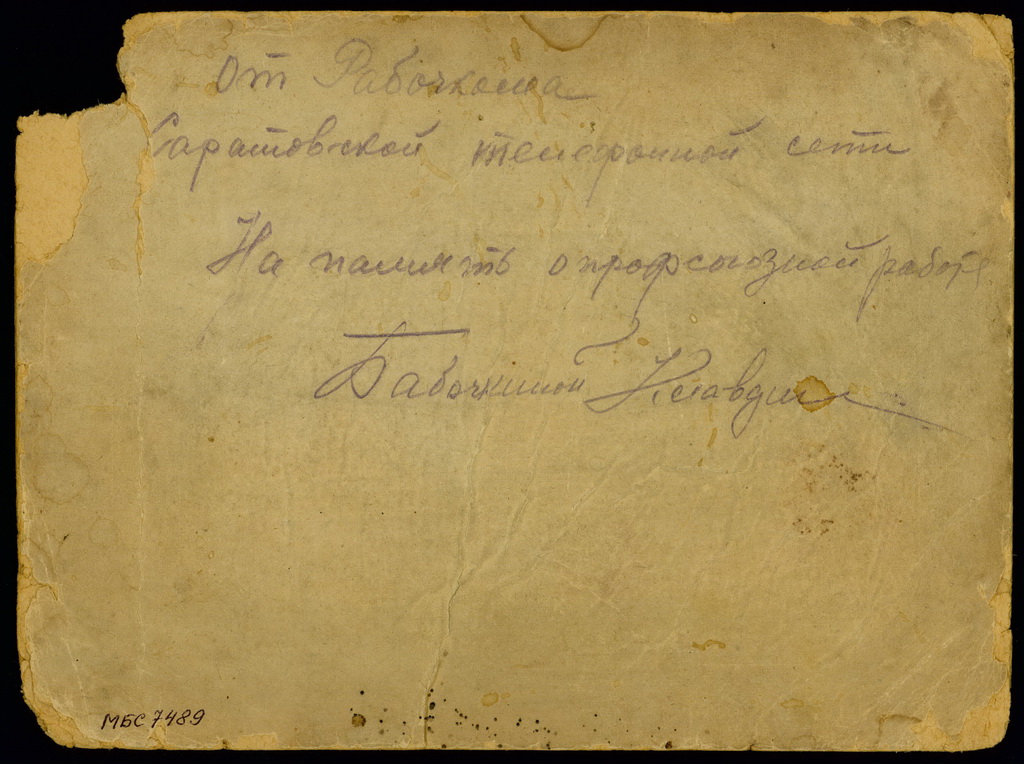 От Рабочкома
Саратовской телефонной сети
На память о профсоюзной работе
Бабочкиной Клавдии.
МБС 7489